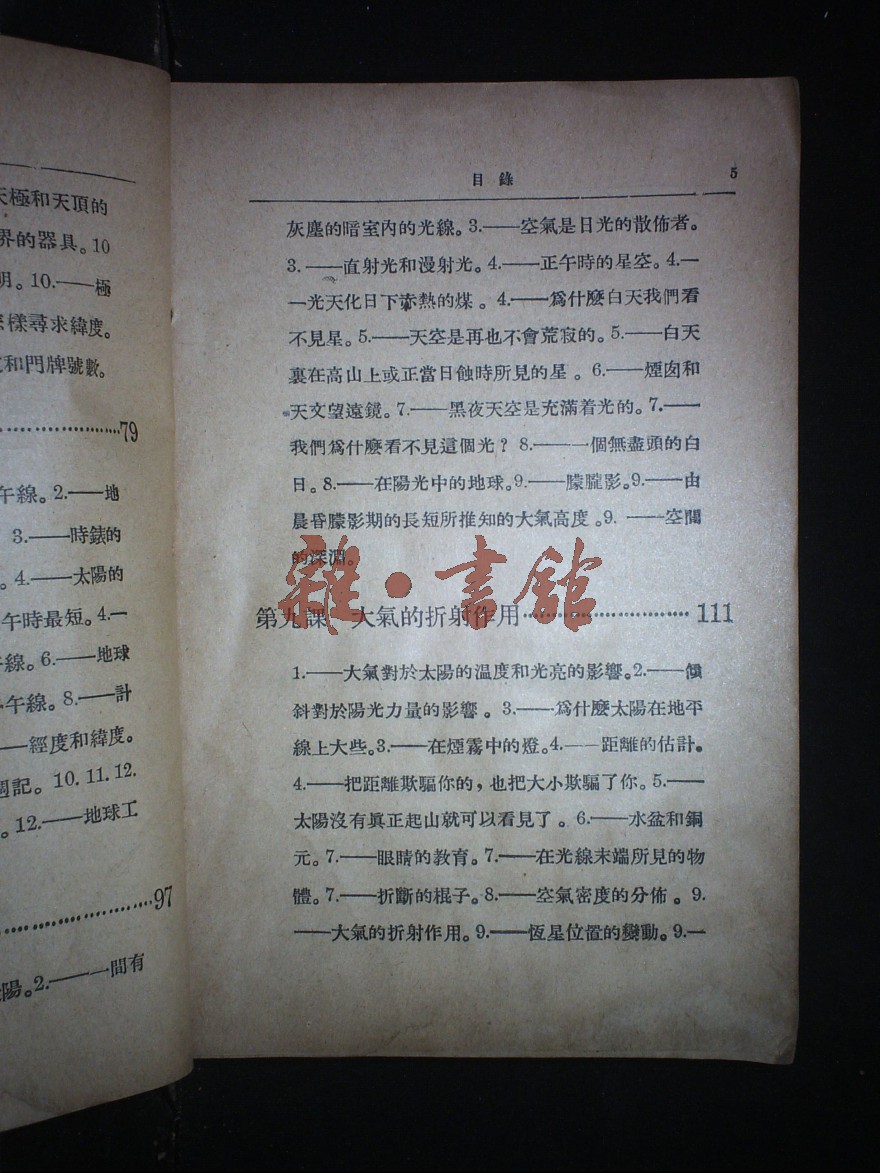 天極和天頂的
界的器具。10
明。10.——極
怎樣尋求緯度。
和門牌號數。
79
午線。2.——地
3.——時錶的
。4.——太陽的
午時最短。4.—
午線。6.——地球
午線。8.——計
——經度和緯度。
週記。10.11.12.
。12.——地球工
97
陽。2.——一間有
目錄 5
灰塵的暗室內的光線。3.——空氣是日光的散佈者。
3.——直射光和漫射光。4.——正午時的星空。4.—
—光天化日下赤熱的煤。4.——爲什麼白天我們看
不見星。5.——天空是再也不會荒寂的。5.——白天
裏在高山上或正當日蝕時所見的星。6.——煙囱和
天文望遠鏡。7.——黑夜天空是充滿着光的。7.——
我們爲什麼看不見這個光?8.——一個無盡頭的白
日。8.——在陽光中的地球。9.——朦朧影。9.——由
晨昏朦影期的長短所推知的大氣高度。9.——空間
的深淵。
雜·書館
第九課 大氣的折射作用 111
1.——大氣對於太陽的温度和光亮的影響。2.——傾
斜對於陽光力量的影響。3.——爲什麼太陽在地平
線上大些。3.——在煙霧中的燈。4.——距離的估計。
4.——把距離欺騙你的,也把大小欺騙了你。5.——
太陽沒有眞正起山就可以看見了。6.——水盆和銅
元。7.——眼睛的教育。7.——在光線末端所見的物
體。7.——折斷的棍子。8.——空氣密度的分佈。9.
——大氣的折射作用。9.——恆星位置的變動。9.—